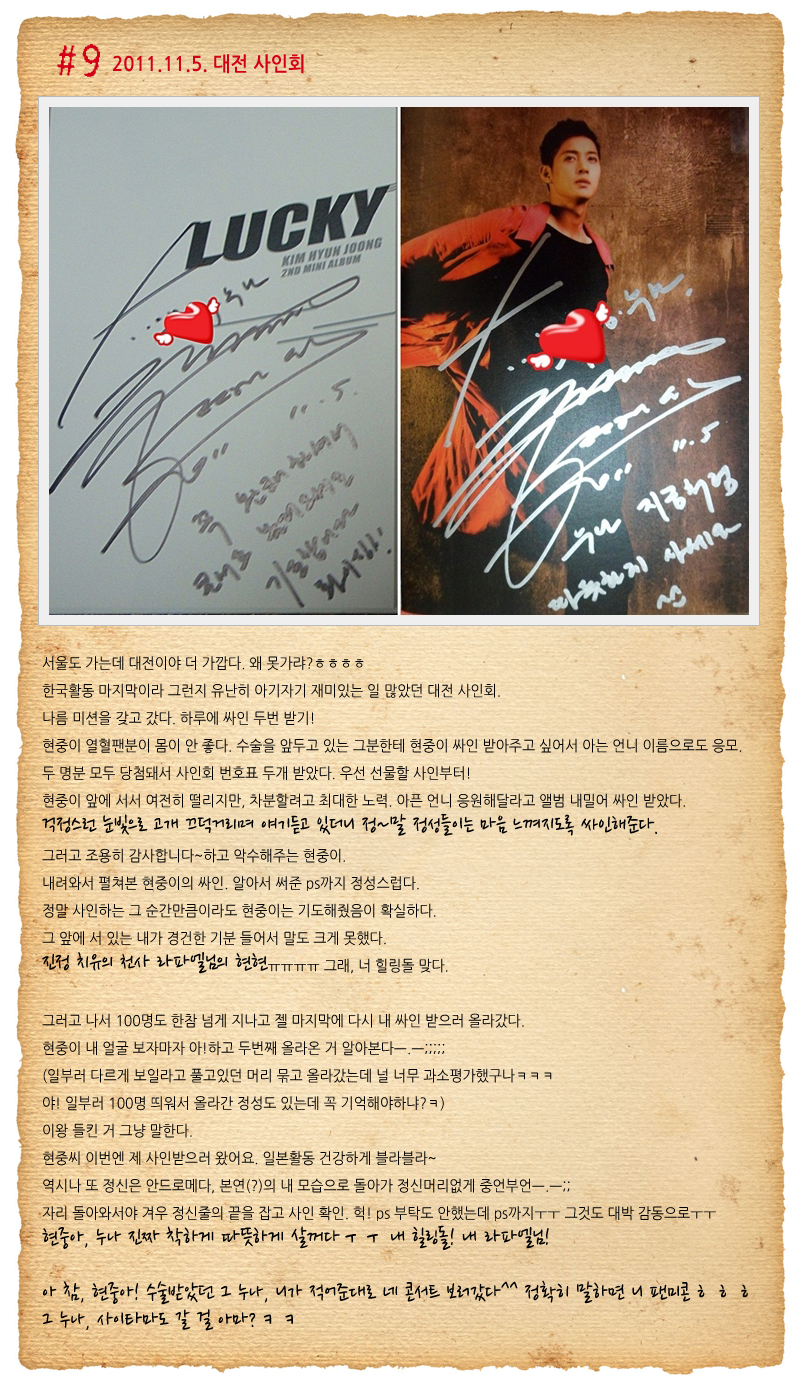 #9 2011.11.5. 대전 사인회
LUCKY
KIM HYUN JOONG
2ND MINI ALBUM
누나
11.5.
꼭
콘서트 보러오세요
기도할게요
화이팅!
누나.
11.5
누나 지금처럼
따뜻하게 사세요
^^
서울도 가는데 대전이야 더 가깝다. 왜 못가랴?ㅎㅎㅎㅎ
한국활동 마지막이라 그런지 유난히 아기자기 재미있는 일 많았던 대전 사인회.
나름 미션을 갖고 갔다. 하루에 싸인 두번 받기!
현중이 열혈팬분이 몸이 안 좋다. 수술을 앞두고 있는 그분한테 현중이 싸인 받아주고 싶어서 아는 언니 이름으로도 응모.
두 명분 모두 당첨돼서 사인회 번호표 두개 받았다. 우선 선물할 사인부터!
현중이 앞에 서서 여전히 떨리지만, 차분할려고 최대한 노력. 아픈 언니 응원해달라고 앨범 내밀어 싸인 받았다.
걱정스런 눈빛으로 고개 끄덕거리며 얘기듣고 있더니 정~말 정성들이는 마음 느껴지도록 싸인해준다.
그러고 조용히 감사합니다~하고 악수해주는 현중이.
내려와서 펼쳐본 현중이의 싸인. 알아서 써준 ps까지 정성스럽다.
정말 사인하는 그 순간만큼이라도 현중이는 기도해줬음이 확실하다.
그 앞에 서 있는 내가 경건한 기분 들어서 말도 크게 못했다.
진정 치유의 천사 라파엘님의 현현ㅠㅠㅠㅠ 그래, 너 힐링돌 맞다.
그러고 나서 100명도 한참 넘게 지나고 젤 마지막에 다시 내 싸인 받으러 올라갔다.
현중이 내 얼굴 보자마자 아!하고 두번째 올라온 거 알아본다ㅡ.ㅡ;;;;;
(일부러 다르게 보일라고 풀고있던 머리 묶고 올라갔는데 널 너무 과소평가했구나ㅋㅋㅋ
야! 일부러 100명 띄워서 올라간 정성도 있는데 꼭 기억해야하냐?ㅋ)
이왕 들킨 거 그냥 말한다.
현중씨 이번엔 제 사인받으러 왔어요. 일본활동 건강하게 블라블라~
역시나 또 정신은 안드로메다, 본연(?)의 내 모습으로 돌아가 정신머리없게 중언부언ㅡ.ㅡ;;
자리 돌아와서야 겨우 정신줄의 끝을 잡고 사인 확인. 헉! ps 부탁도 안했는데 ps까지ㅜㅜ 그것도 대박 감동으로ㅜㅜ
현중아, 누나 진짜 착하게 따뜻하게 살꺼다 ㅜ ㅜ 내 힐링돌! 내 라파엘님!
아 참, 현중아! 수술받았던 그 누나, 니가 적어준대로 네 콘서트 보러갔다^^ 정확히 말하면 니 팬미콘 ㅎ ㅎ ㅎ
그 누나, 사이타마도 갈 걸 아마? ㅋ ㅋ